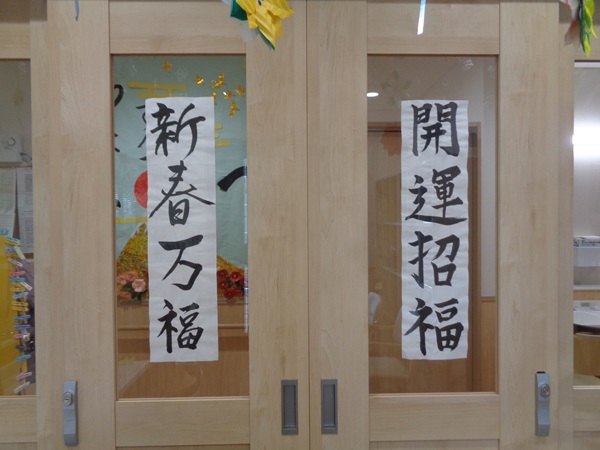 開運招福
新春万福